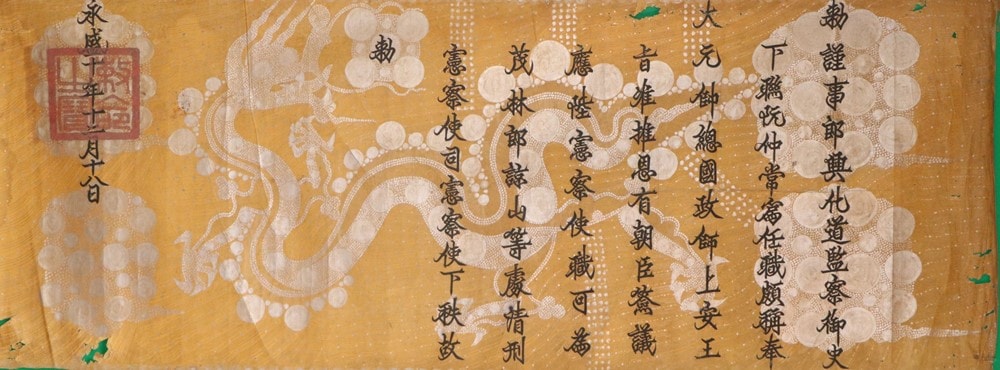 勅謹事郎興化道監察御史
下聯阮仲常爲任職頗稱奉
大元帥總國政師上安王
旨准推恩有朝臣僉議
應陞憲察使職可爲
茂林郎諒山等處清刑
憲察使司憲察使下秩故
勅
永盛十年十二月十八日
勅命之寶